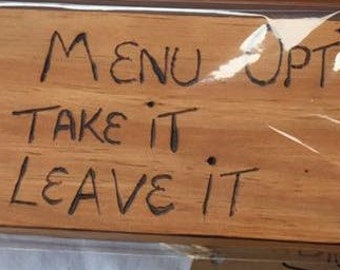 MENU OPT
TAKE iT
LEAVE iT